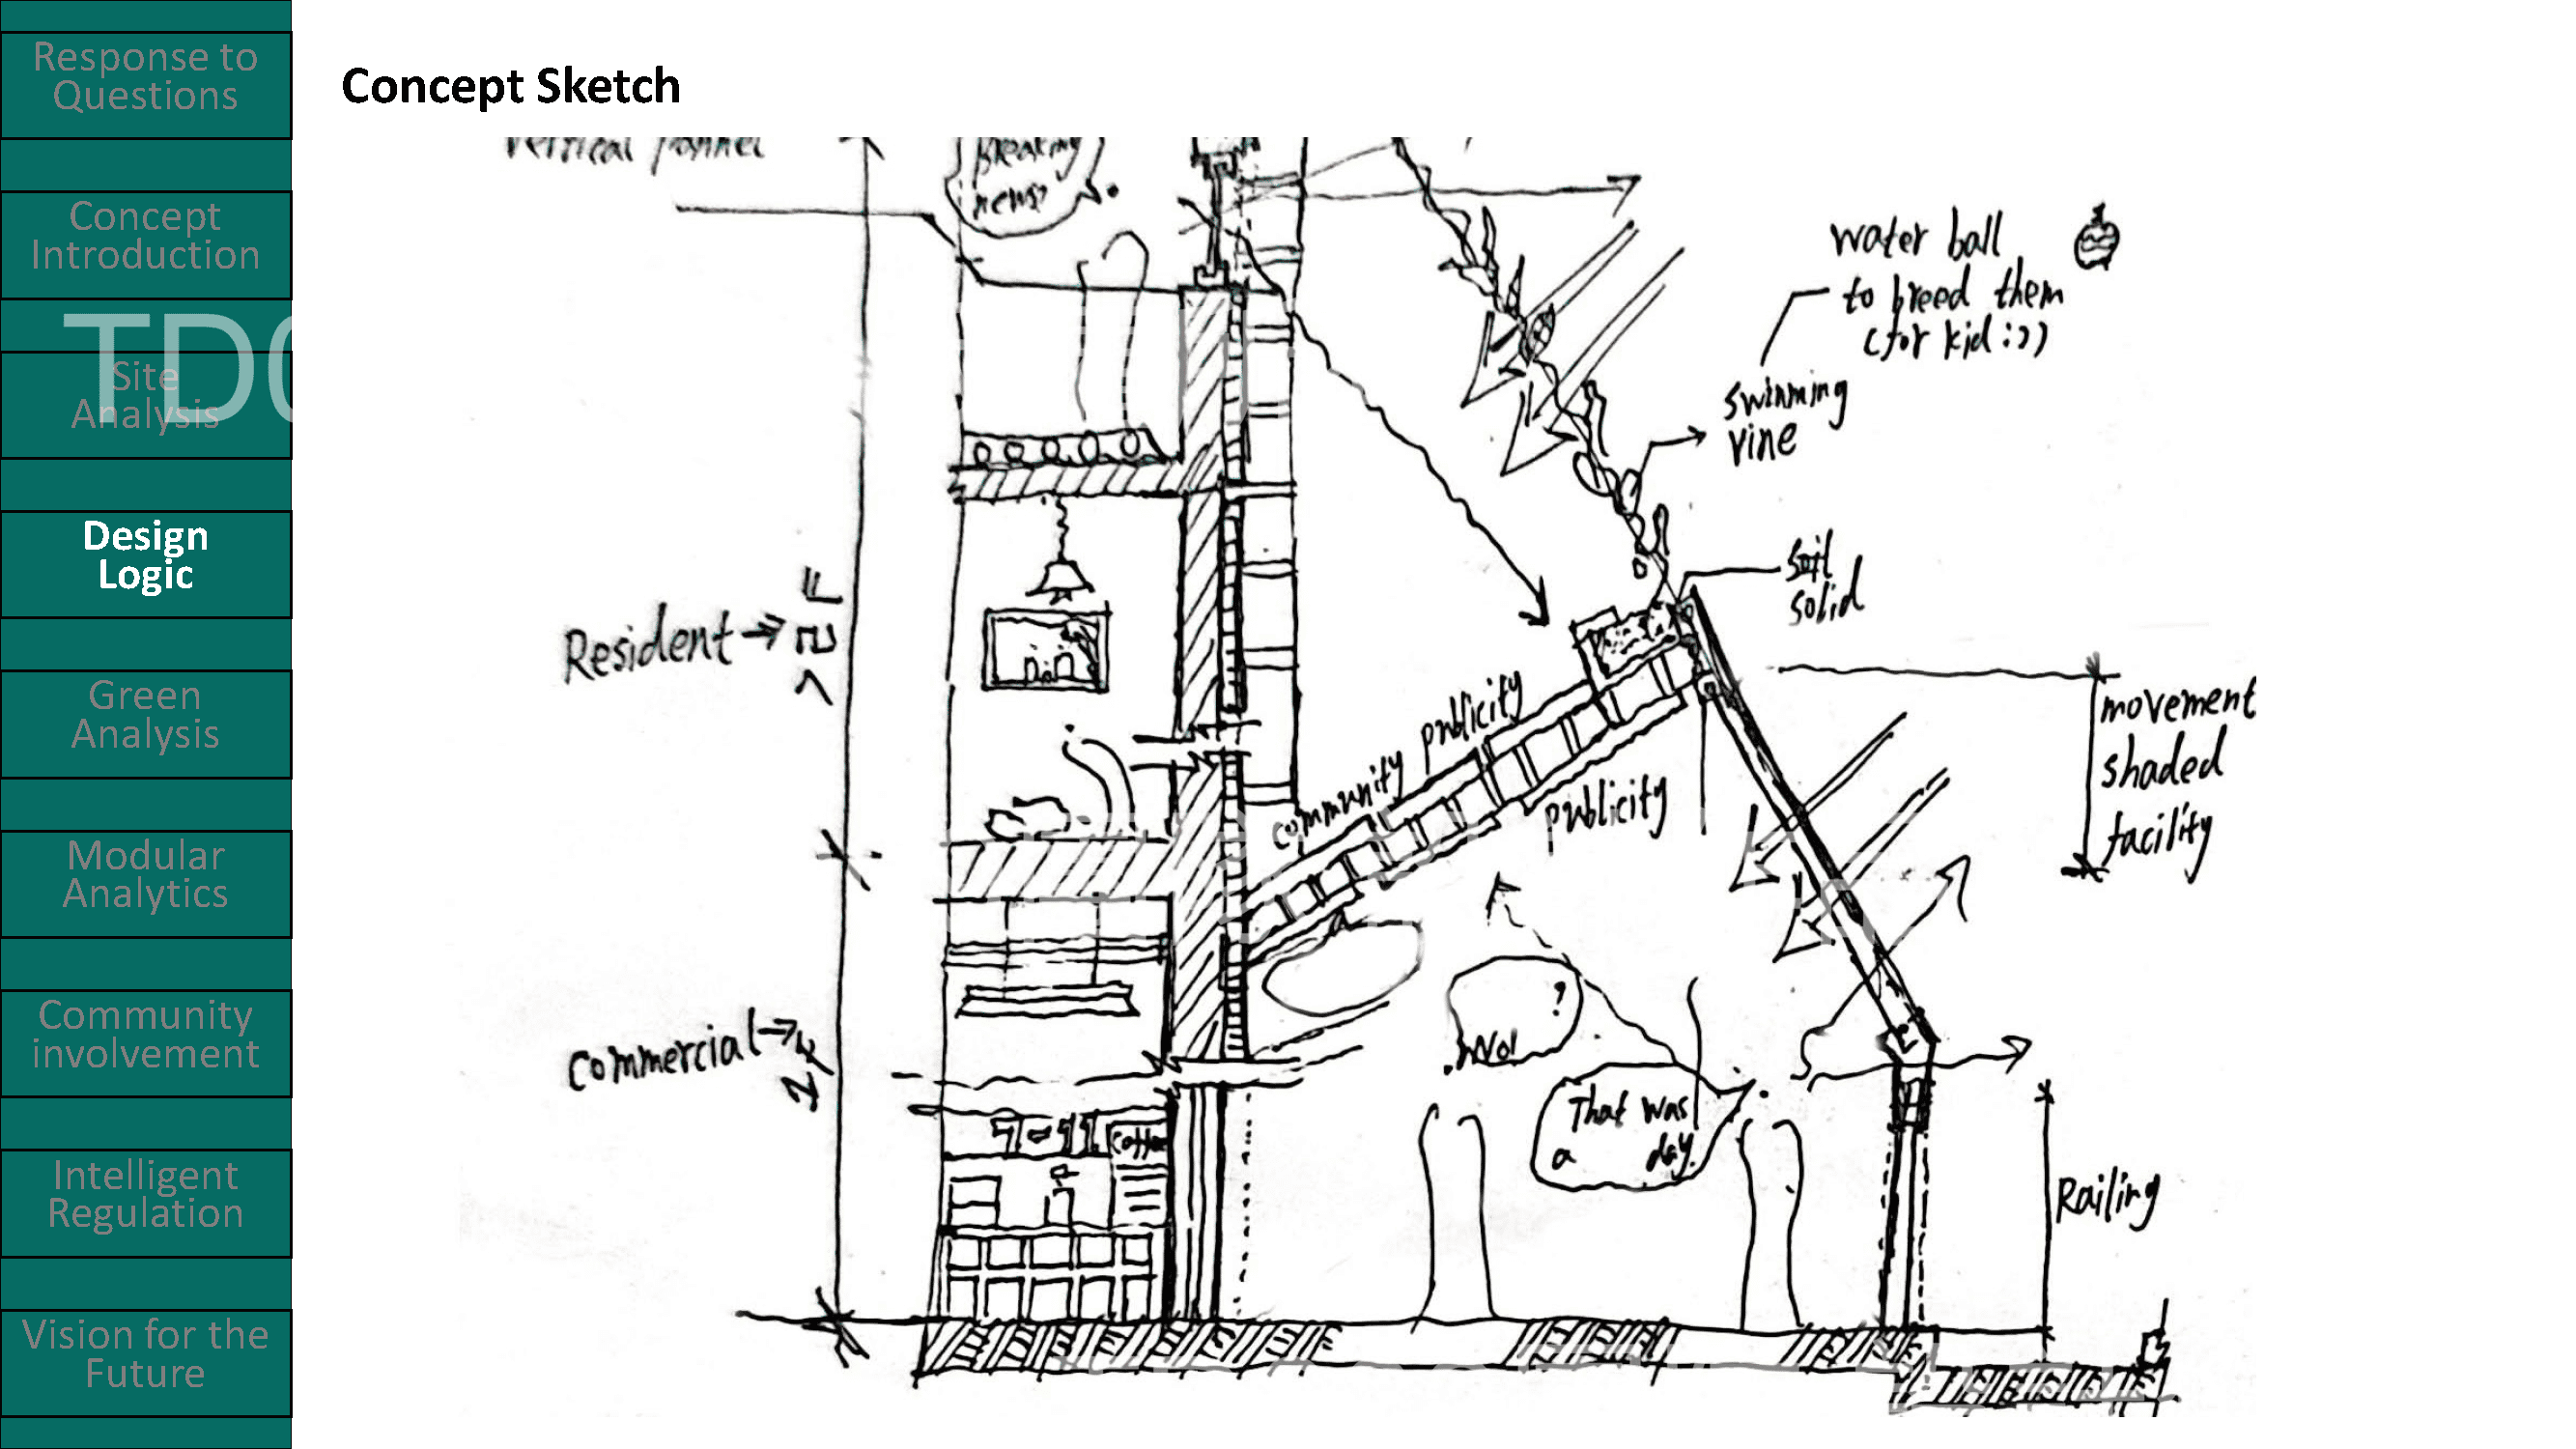 Response to
Questions
Concept
Introduction
TD
Site
Analysis
Design
Logic
Green
Analysis
Modular
Analytics
Community
involvement
Intelligent
Regulation
Vision for the
Future
Concept Sketch
vertical pannel
Breaking
news?
water ball
to breed them
(for kid :))
swinming
vine
soil
solid
Resident → >2F
movement
shaded
facility
community publicity
publicity
commercial →
?
wo!
That was
a day.
coffee
Railing